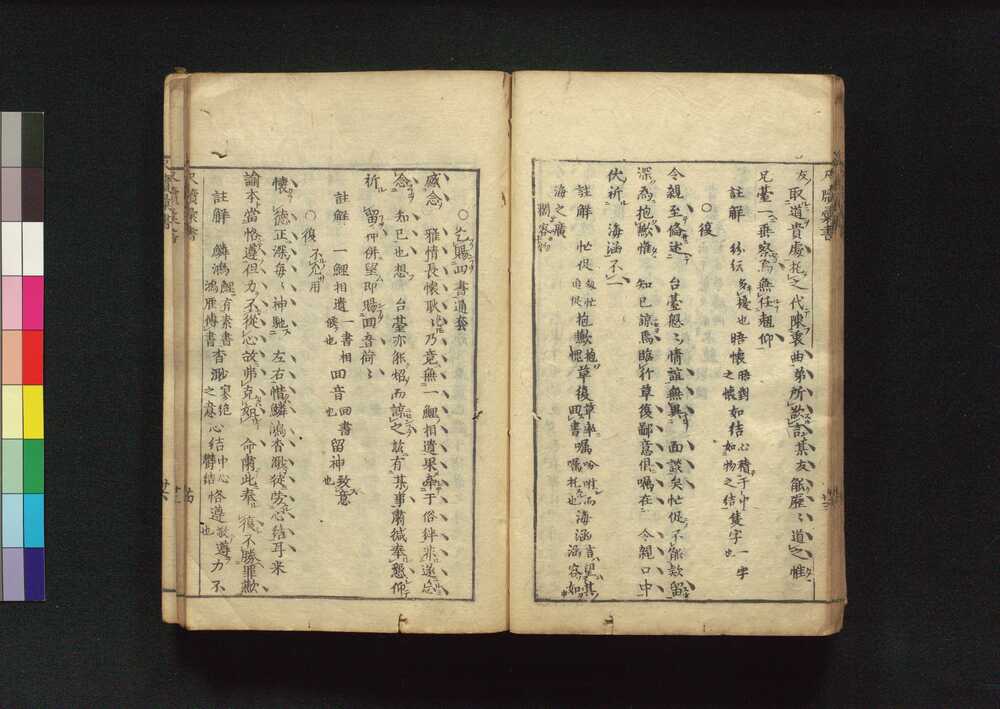 友取道貴處托之代陳衷曲弟所欲言某友能歴〻道之惟
兄臺一垂察焉無任翹仰
註解 紛紜多擾也 晤懷晤對之懷 如結心積于中如物之結 隻字一字也
○復
令親至備述 台臺慇〻情誼無異 面談矣忙促不能款留
深為抱歉惟 知己諒焉臨行草復鄙意俱嘱在 令親口中
伏祈 海涵不一
註解 忙促急忙迫促 抱歉抱愧 草復草率回書 嘱吩咐而嘱托也 海涵言望其涵容如
海之廣濶容物
○乞賜回書通套
感念 雅情長懷耿〻乃竟無一鯉相遺果牽于俗絆非遂忘
念 知已也想 台臺亦能炤而諒之玆有某事肅緘奉懇仰
祈 留神併望即賜回音荷〻
註解 一鯉相遺一書相候也 回音回書也 留神致意也
○復不允用
懷 德正深每〻神馳 左右惜鱗鴻杳渺徒労心結耳来
諭本當恪遵但力不従心故弗克如 命肅此奏 復不勝罪歉
註解 鱗鴻鯉有素書鴻雁傳書 杳渺寥絶之意 心結中心欝結 恪遵敬遵也 力不